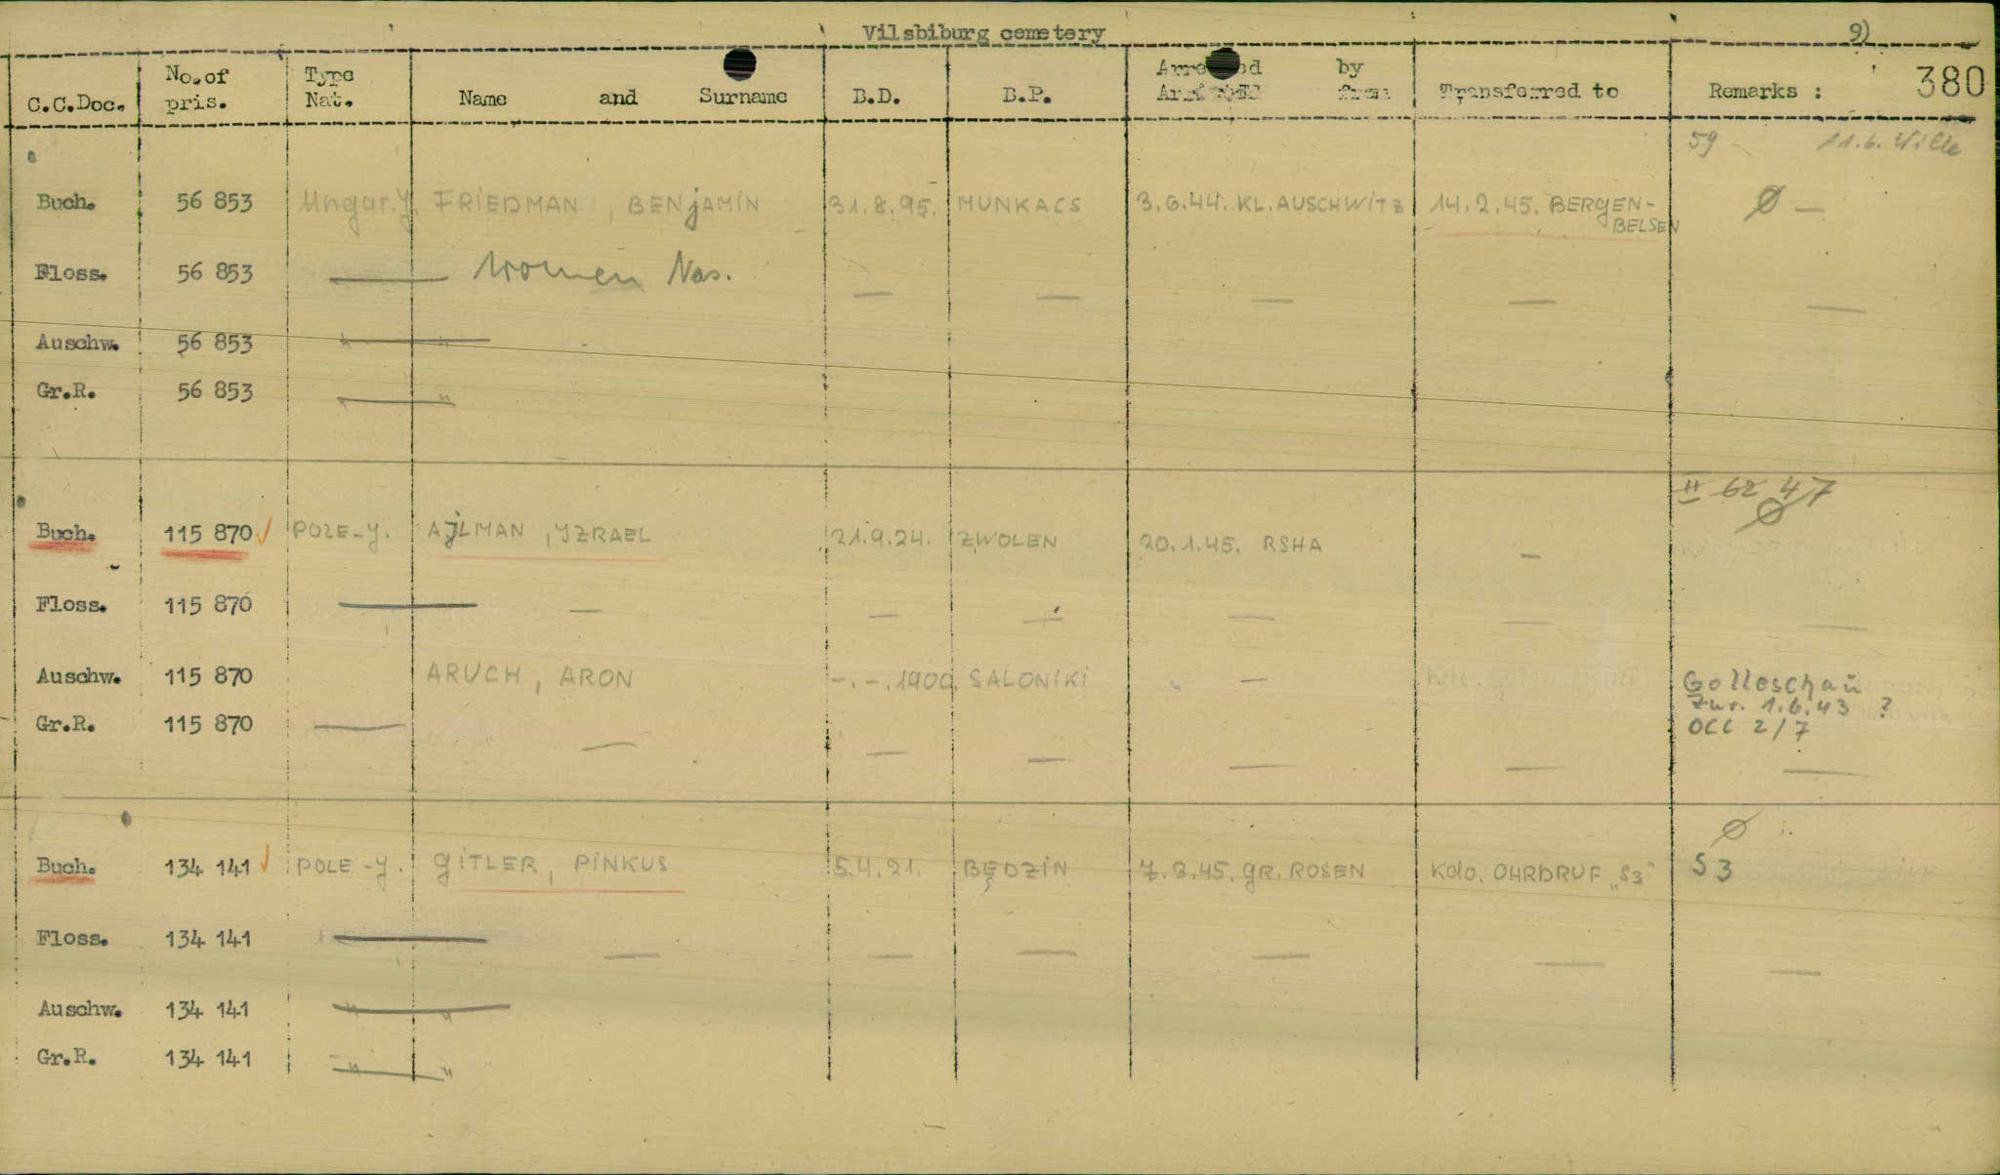 Vilsbiburg cemetery 9)
C.C.Doc. No.of pris. Type Nat. Name and Surname B.D. B.P. Arrested by Transferred to Remarks : 380
59 11.6. Wille
Buch. 56 853 Ungar.J. FRIEDMAN, BENJAMIN 31.8.95. MUNKACS 3.6.44. KL. AUSCHWITZ 14.2.45. BERGEN- Ø —
BELSEN
Floss. 56 853 — women Nos. — — — — —
Auschw. 56 853 " — "
Gr.R. 56 853 " — "
II 62 47
Ø
Buch. 115 870 ✓ POLE-J. AJLMAN, JZRAEL 21.9.24. ZWOLEN 20.1.45. RSHA —
Floss. 115 870 — — — — — — —
Auschw. 115 870 ARUCH, ARON -.-.1900 SALONIKI — Golleschau
zur. 1.6.43 ?
Gr.R. 115 870 — — — — — — OCC 2/7
—
Ø
Buch. 134 141 ✓ POLE-J. GITLER, PINKUS 5.4.21. BĘDZIN 7.3.45. GR. ROSEN Kdo. OHRDRUF „S3" S3
Floss. 134 141 — — — — — — —
Auschw. 134 141 " — "
Gr.R. 134 141 " — "